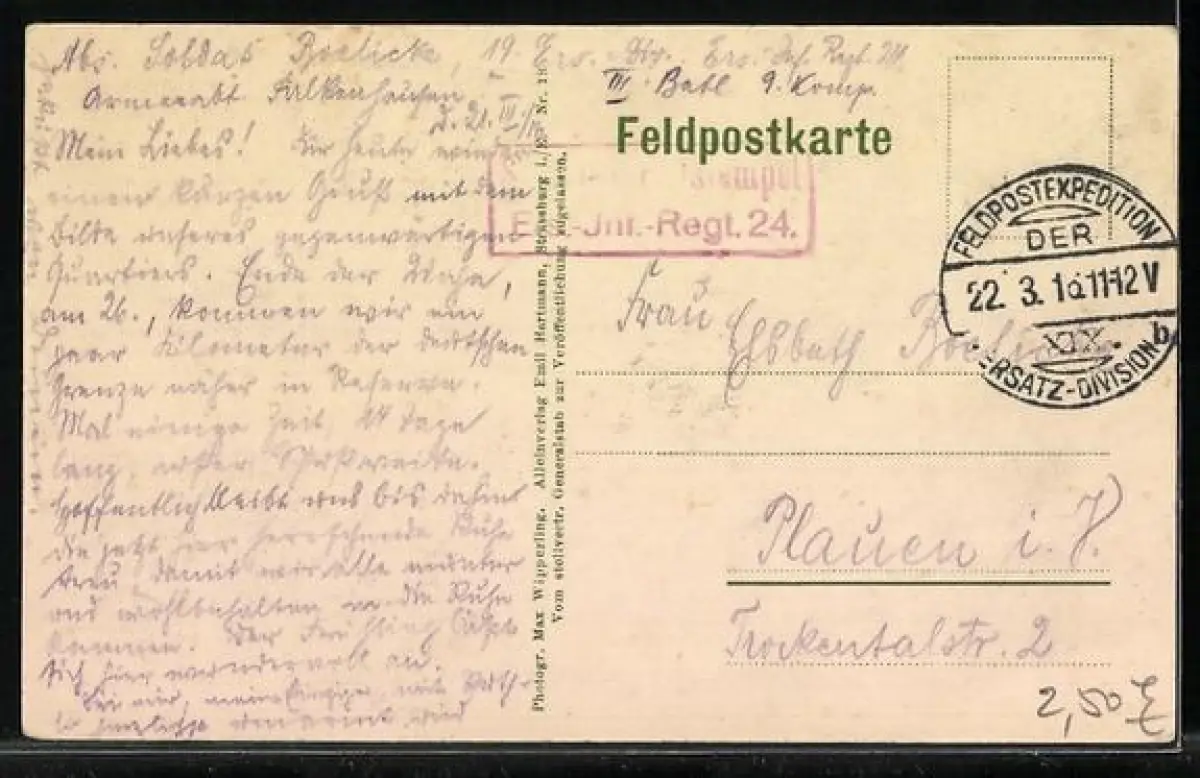 Abs. Soldat Boelicke, 19. Ers. Div. Ers. Inf. Regt. 24
III. Batl 9. Komp.
Armeeabt. Falkenhausen.
d. 21. III.
Mein Liebes! Dir heute wieder
einen kurzen Gruß mit dem
Bilde unseres gegenwärtigen
Quartiers. Ende der Woche,
am 26., kommen wir ein
paar Kilometer der deutschen
Grenze näher in Reserve.
Mal einige Zeit, 14 Tage
lang, außer Schußweite.
Hoffentlich bleibt uns bis dahin
die jetzt hier herrschende Ruhe
treu, damit wir alle munter
und wohlbehalten in die Ruhe
kommen. Der Frühling läßt
sich hier wundervoll an.
Sei mir, meine Einzige,
herzlichst umarmt und
Photogr. Max Wipperling. Alleinverlag Emil Hartmann, Strassburg i./E. Nr. 18
Vom stellvertr. Generalstab zur Veröffentlichung zugelassen.
Feldpostkarte
stempel
Ers.-Inf.-Regt. 24.
FELDPOSTEXPEDITION
DER
22. 3. 16 11-12 V
XIX. b
ERSATZ-DIVISION
Frau
Plauen i. V.
Trockentalstr. 2
2,50 £